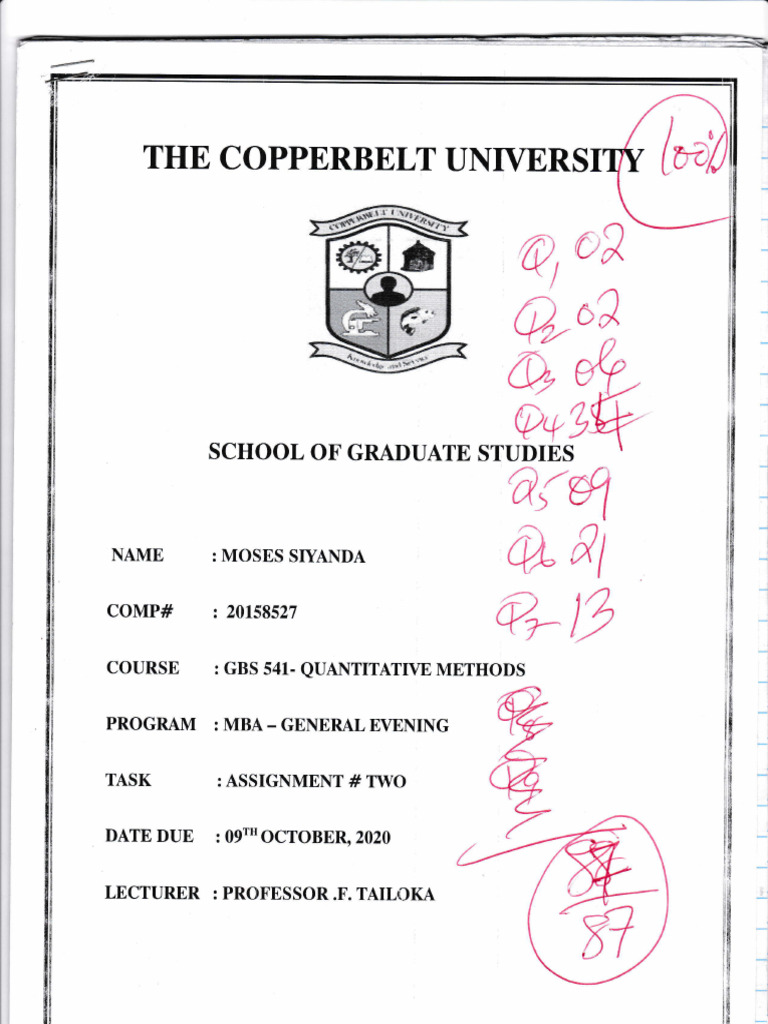 100%
THE COPPERBELT UNIVERSITY
COPPERBELT UNIVERSITY
Knowledge and Service
Q1 02
Q2 02
Q3 06
Q4 35
SCHOOL OF GRADUATE STUDIES
Q5 09
NAME : MOSES SIYANDA
Q6 21
COMP# : 20158527
Q7 13
COURSE : GBS 541- QUANTITATIVE METHODS
PROGRAM : MBA – GENERAL EVENING
TASK : ASSIGNMENT # TWO
DATE DUE : 09TH OCTOBER, 2020
LECTURER : PROFESSOR .F. TAILOKA
87